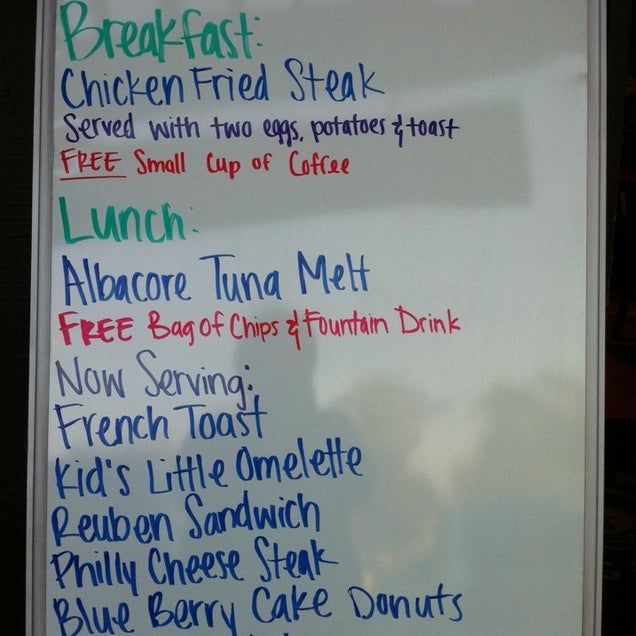 Breakfast:
Chicken Fried Steak
Served with two eggs, potatoes & toast
FREE Small Cup of Coffee
Lunch:
Albacore Tuna Melt
FREE Bag of Chips & Fountain Drink
Now Serving:
French Toast
Kid's Little Omelette
Reuben Sandwich
Philly Cheese Steak
Blue Berry Cake Donuts